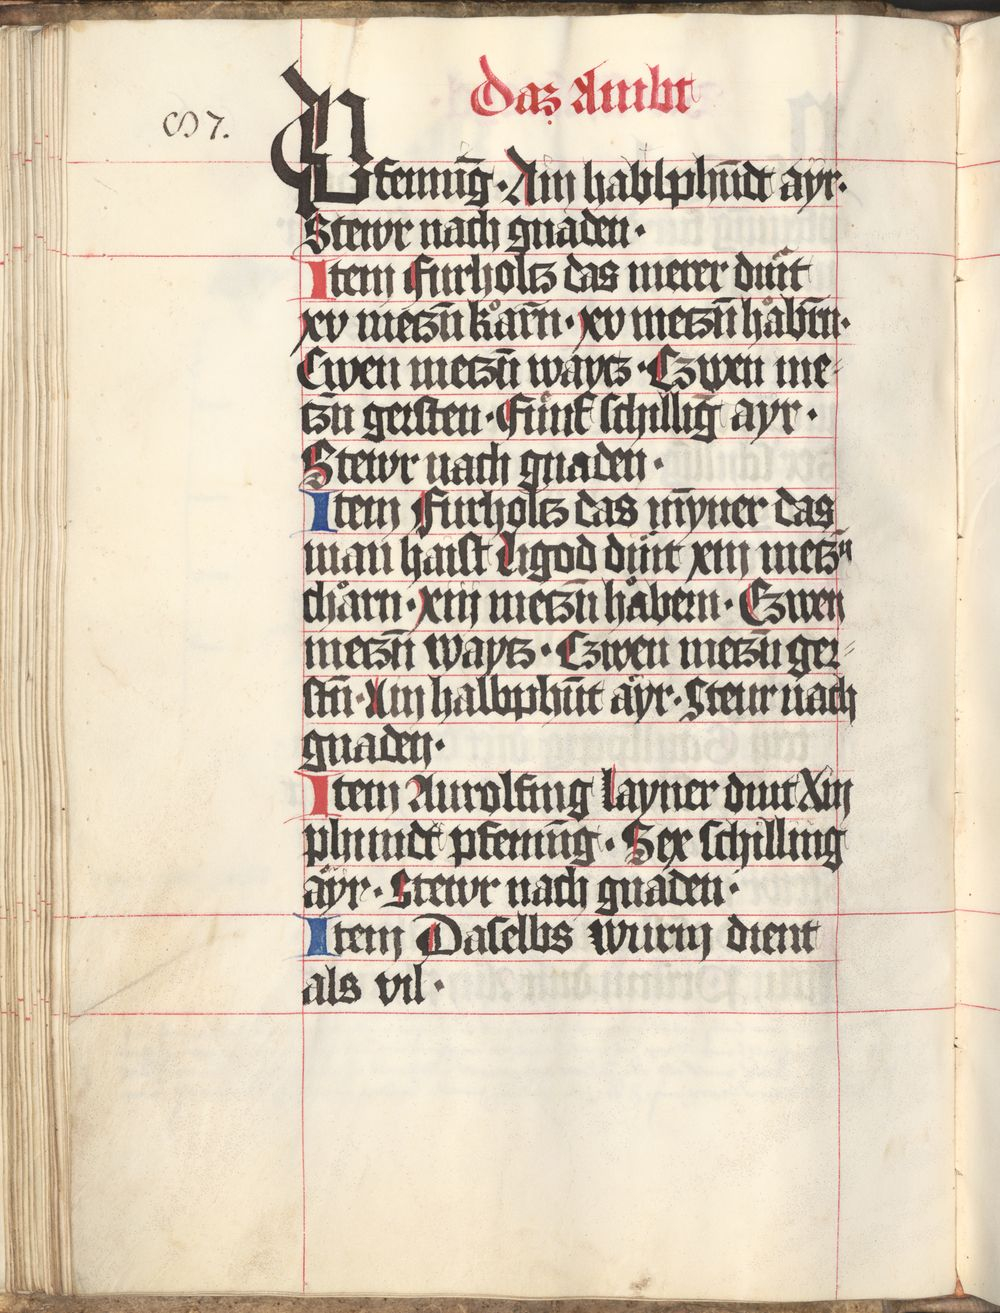 Daz Ambt
S 7.
Pfenning · Ain hablphūdt ayr ·
Stewr nach gnaden ·
Item Furholtz das merer dint
xv metzn̄ kårn̄ · xv metzn̄ håbrn̄ ·
Cwen metzn̄ waytz · Czwen me⸗
tzn̄ gersten · Fůnf schillīg ayr ·
Stewr nach gnaden ·
Item Furholtz das mȳner das
man haist Ligod dint xiij metzn̄
chårn · xiij metzn̄ håbern · Czwen
metzn̄ waytz · Czwen metzn̄ ger⸗
stn̄ · Ain halbphūt åyr · Steur nach
gnaden ·
Item Aurolfing layner dint Xiij
phundt pfenning · Sex schilling
åyr · Stewr nach gnaden ·
Item Daselbs wurm dient
als vil ·